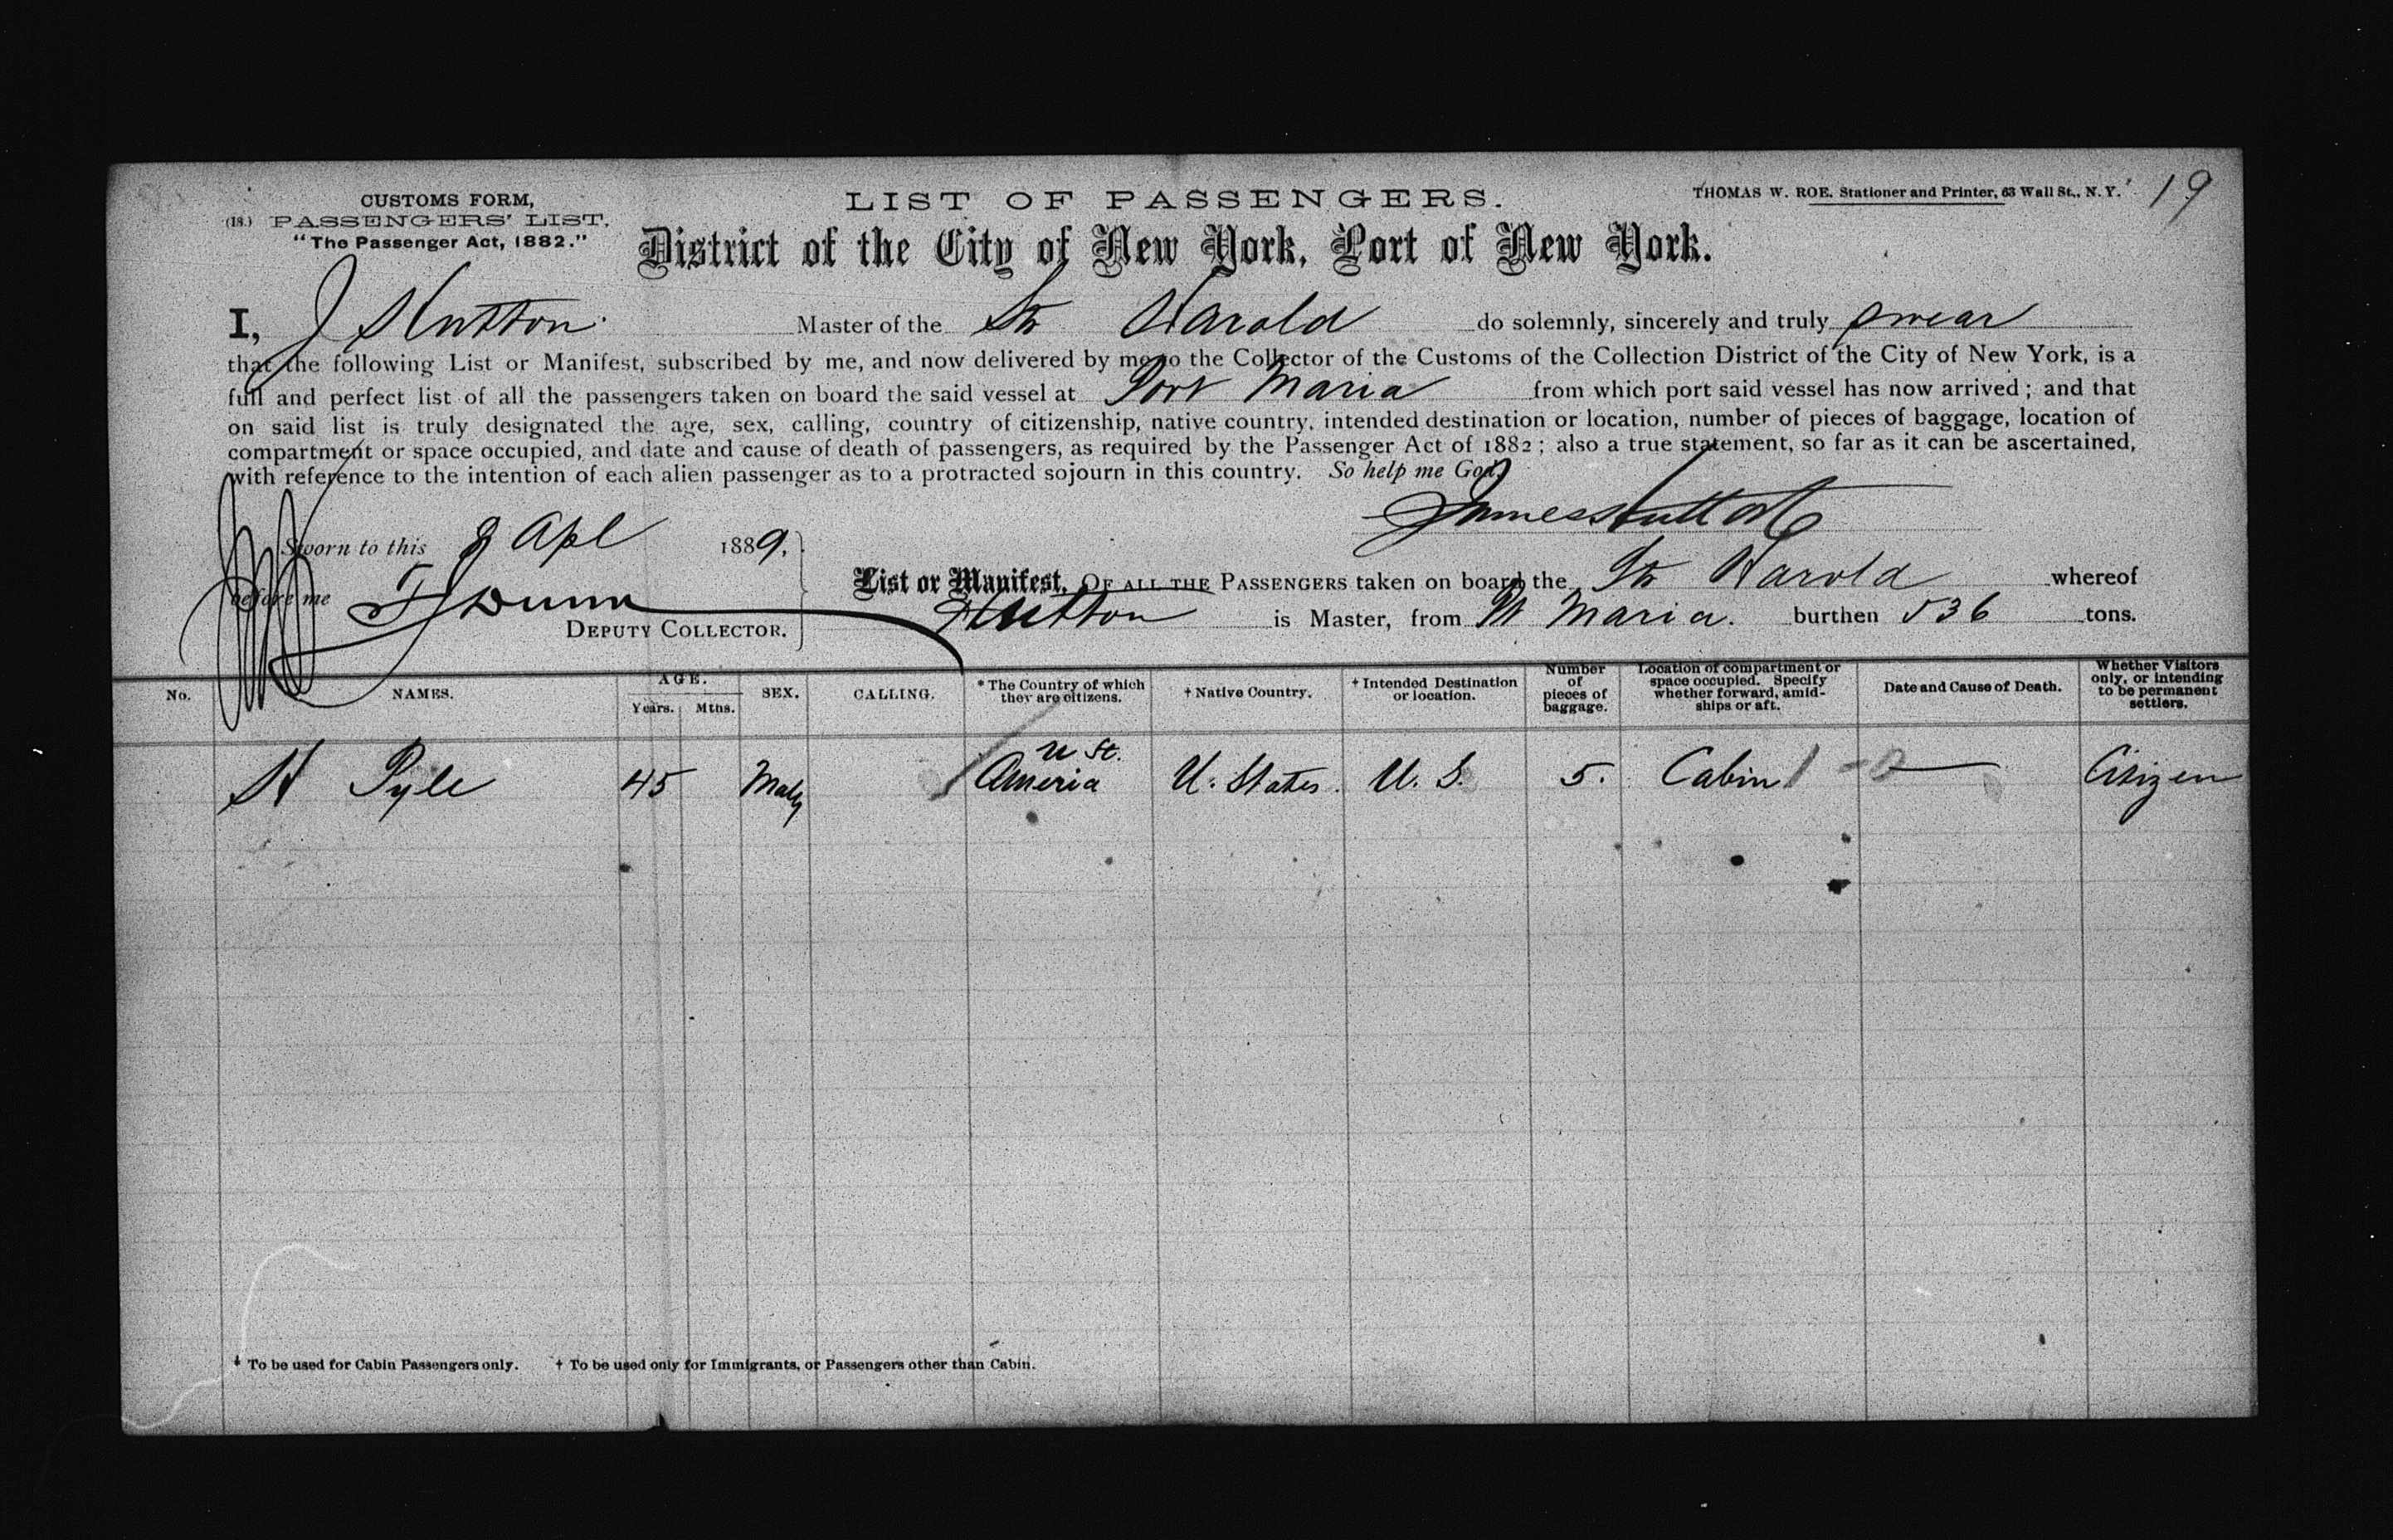 CUSTOMS FORM,
(18.) PASSENGERS' LIST,
"The Passenger Act, 1882."
LIST OF PASSENGERS.
THOMAS W. ROE, Stationer and Printer, 63 Wall St., N. Y.
19
District of the City of New York, Port of New York.
I, J Hutton Master of the Str Harold do solemnly, sincerely and truly swear
that the following List or Manifest, subscribed by me, and now delivered by me to the Collector of the Customs of the Collection District of the City of New York, is a
full and perfect list of all the passengers taken on board the said vessel at Port Maria from which port said vessel has now arrived; and that
on said list is truly designated the age, sex, calling, country of citizenship, native country, intended destination or location, number of pieces of baggage, location of
compartment or space occupied, and date and cause of death of passengers, as required by the Passenger Act of 1882; also a true statement, so far as it can be ascertained,
with reference to the intention of each alien passenger as to a protracted sojourn in this country. So help me God
James Hutton
Sworn to this 8 Apl 1889,
before me Dunn
DEPUTY COLLECTOR.
List or Manifest, OF ALL THE PASSENGERS taken on board the Str Harold whereof
Hutton is Master, from Pt Maria. burthen 536 tons.
No. NAMES. AGE. Years. Mths. SEX. CALLING. * The Country of which they are citizens. † Native Country. † Intended Destination or location. Number of pieces of baggage. Location of compartment or space occupied. Specify whether forward, amidships or aft. Date and Cause of Death. Whether Visitors only, or intending to be permanent settlers.
U St.
H Pyle 45 Male Ameria U. States. U. S. 5. Cabin Citizen
* To be used for Cabin Passengers only. † To be used only for Immigrants, or Passengers other than Cabin.